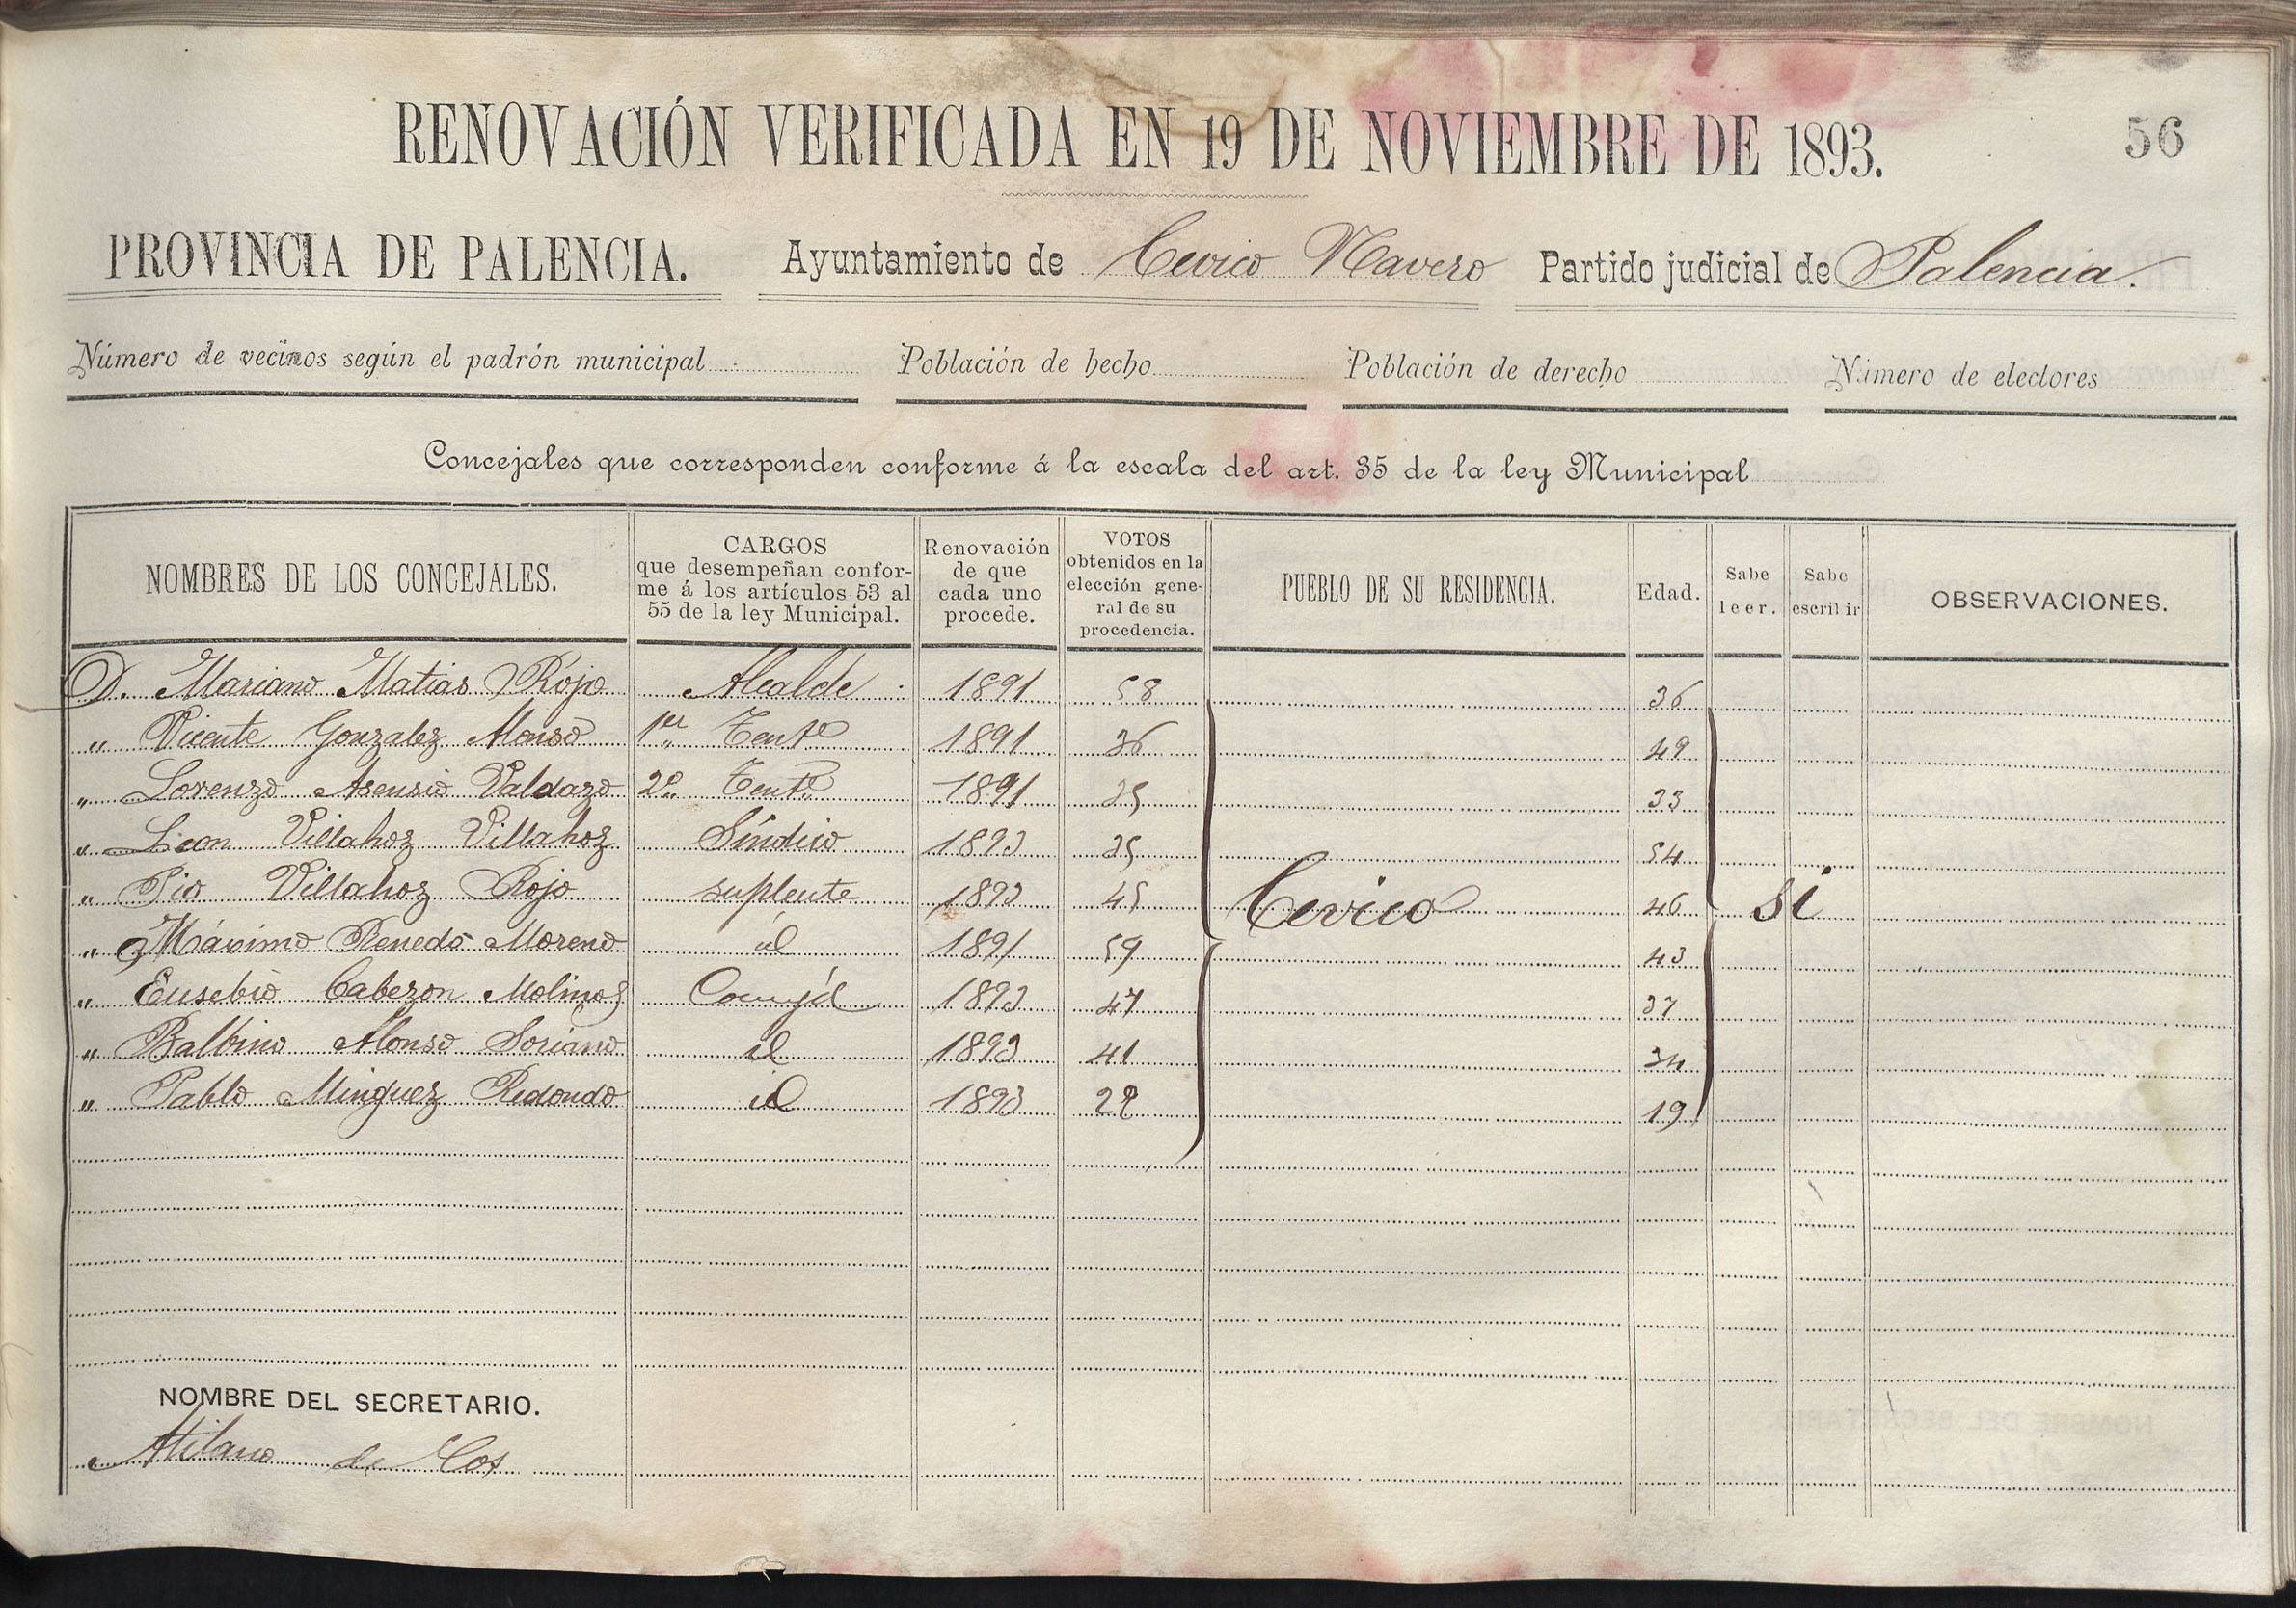 RENOVACIÓN VERIFICADA EN 19 DE NOVIEMBRE DE 1893. 56
PROVINCIA DE PALENCIA. Ayuntamiento de Cevico Navero Partido judicial de Palencia.
Número de vecinos según el padrón municipal Población de hecho Población de derecho Número de electores
Concejales que corresponden conforme á la escala del art. 35 de la ley Municipal
NOMBRES DE LOS CONCEJALES.
CARGOS
que desempeñan confor-
me á los artículos 53 al
55 de la ley Municipal.
Renovación
de que
cada uno
procede.
VOTOS
obtenidos en la
elección gene-
ral de su
procedencia.
PUEBLO DE SU RESIDENCIA.
Edad.
Sabe
leer.
Sabe
escribir
OBSERVACIONES.
D. Mariano Matias Rojo Alcalde 1891 58 36
" Vicente Gonzalez Alonso 1er Tente 1891 36 49
" Lorenzo Asensio Valdazo 2º Tente 1891 35 33
" Leon Villahoz Villahoz Síndico 1893 35 54
" Pio Villahoz Rojo suplente 1893 45 Cevico 46 si
" Máximo Renedo Moreno id 1891 59 43
" Eusebio Cabezon Molinos Concejal 1893 47 37
" Balbino Alonso Soriano id 1893 41 34
" Pablo Minguez Redondo id 1893 22 19
NOMBRE DEL SECRETARIO.
Atilano de Cos